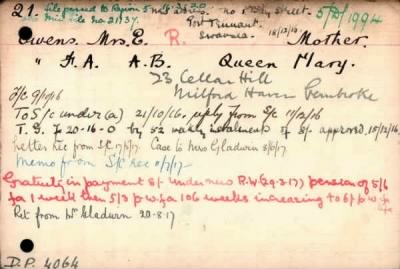 21. File passed to Region 5 no Street. 5/D/1994
Misc File no. 2137. Port Tennant. Swansea. 18/12/16
Owens. Mrs. E. R. Mother.
A. A.B. Queen Mary.
23 Cellar Hill
Milford Haven Pembroke
9/10/16
To S/C under (a) 21/10/16. reply from S/C 11/2/16
T. G. £ 20-16-0 by 52 weekly instalments of 8/- approved. 15/12/16.
Letter Rec from S/C Case to Mrs Gladwin 8/6/17.
Memo from S/C Rec
Gratuity in payment 8/- under new R.W (29.3.17) pension of 5/6
fa 1 week then 5/3 p.w. fa 106 weeks increasing to 6/- p.w. fa
Ret from Mrs Gladwin 20-8-17
D.P. 4064